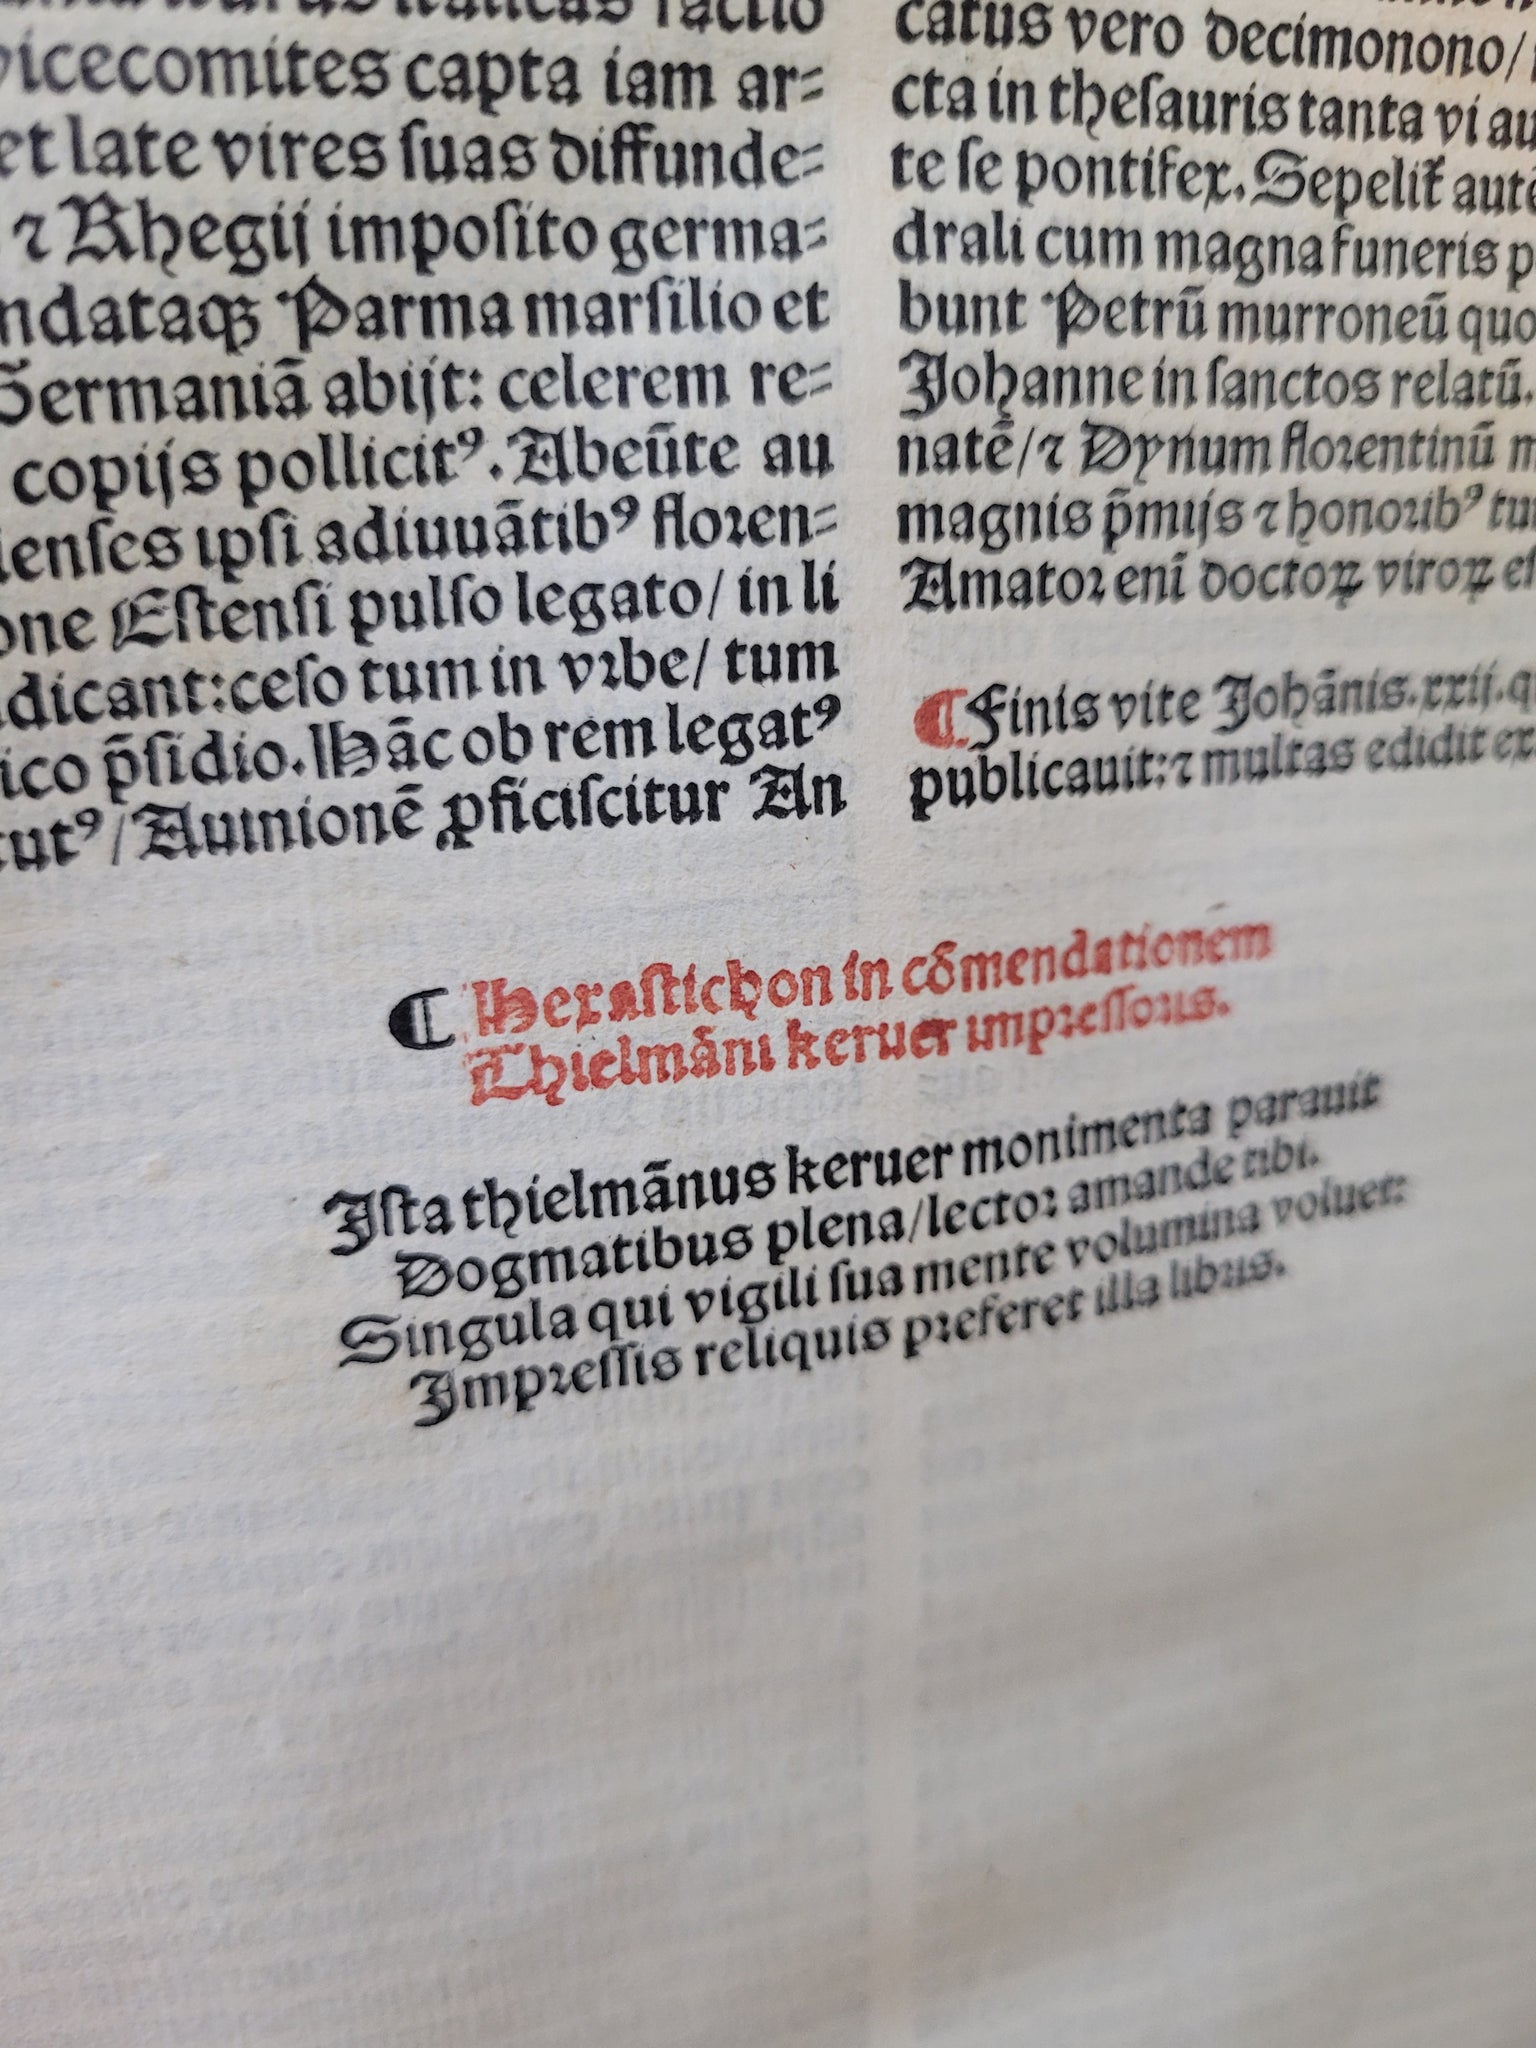 vicecomites capta iam ar⸗
et late vires ſuas diffunde⸗
⁊ Rhegij impoſito germa⸗
ndataqꝫ Parma marſilio et
Germaniā abijt: celerem re⸗
copijs pollicitꝰ. Abeūte au
ienſes ipſi adiuuātibꝰ floꝛen⸗
one Eſtenſi pulſo legato/ in li
dicant: ceſo tum in vꝛbe/ tum
ico p̄ſidio. Hāc ob rem legatꝰ
tutꝰ/ Auinionē ꝓficiſcitur An
catus vero decimonono/
cta in theſauris tanta vi au
te ſe pontifex. Sepelit᷑ autē
drali cum magna funeris p
bunt Petrū murroneū quo
Johanne in ſanctos relatū.
natē/ ⁊ Dynum floꝛentinū m
magnis p̄mijs ⁊ honoꝛibꝰ tu
Amatoꝛ enī doctoꝝ viroꝝ eſ
¶ Finis vite Johānis. xxij. q
publicauit: ⁊ multas edidit ex
¶ Hexaſtichon in cōmendationem
Thielmāni keruer impꝛeſſoꝛis.
Jſta thielmānus keruer monimenta parauit
Dogmatibus plena/ lectoꝛ amande tibi.
Singula qui vigili ſua mente volumina voluet:
Jmpꝛeſſis reliquis pꝛeferet illa libꝛis.